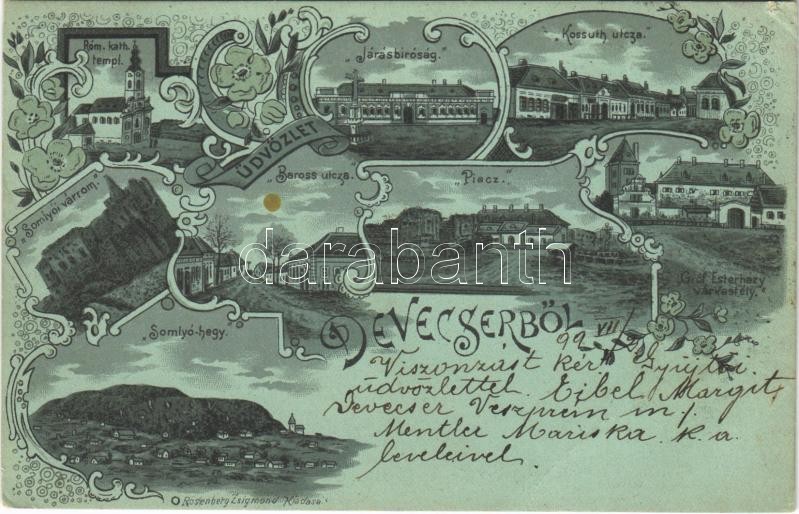 Róm. kath.
templ.
"Járásbiróság."
"Kossuth utcza."
ÜDVÖZLET
"Baross utcza."
"Piacz."
"Somlyói várrom."
Gróf Esterházy
várkastély."
darabanth
"Somlyó-hegy."
DEVECSERBŐL
VII
Viszonzást kér. Gyüjtői
üdvözlettel. Eibel Margit
Devecser Veszprém m/
Mentler Mariska k. a.
leveleivel.
Rosenberg Zsigmond Kiadása